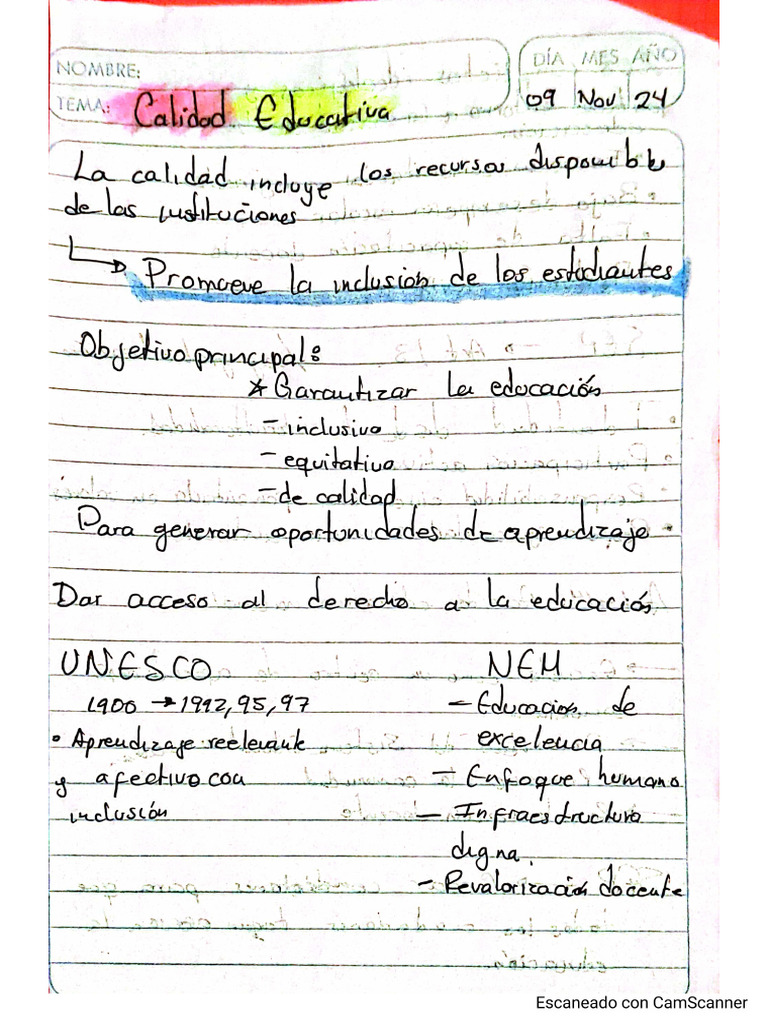 NOMBRE:
DÍA MES AÑO
TEMA: Calidad Educativa
09 Nov 24
La calidad incluye los recursos disponible
de las instituciones
Promueve la inclusión de los estudiantes
Objetivo principal:
* Garantizar la educación
- inclusiva
- equitativa
- de calidad
Para generar oportunidades de aprendizaje.
Dar acceso al derecho a la educación
UNESCO
1900 → 1992, 95, 97
• Aprendizaje reelevante
y afectivo con
inclusión
NEM
- Educación de
excelencia
- Enfoque humano
- Infraestructura
digna.
- Revalorización docente
Escaneado con CamScanner